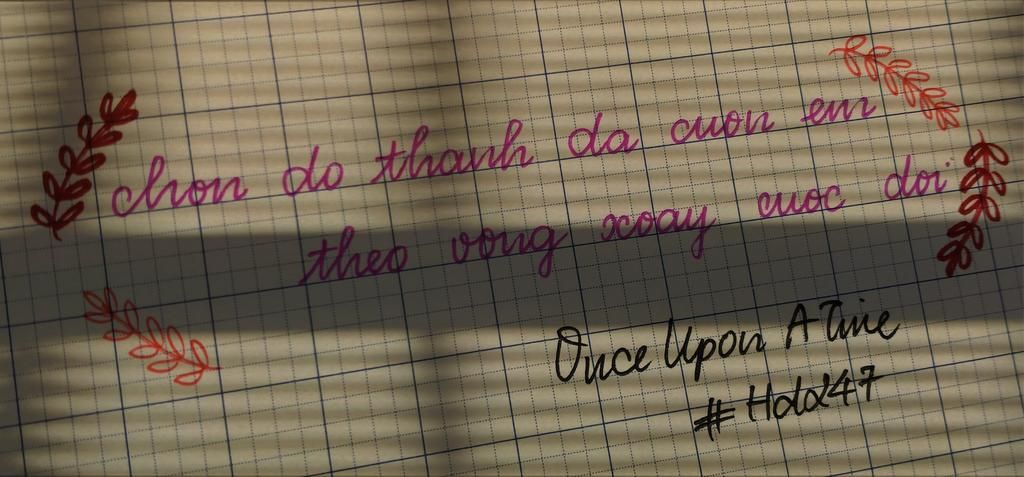 chon do thanh da cuon em
theo vong xoay cuoc doi
Once Upon A Time
#Hdd247